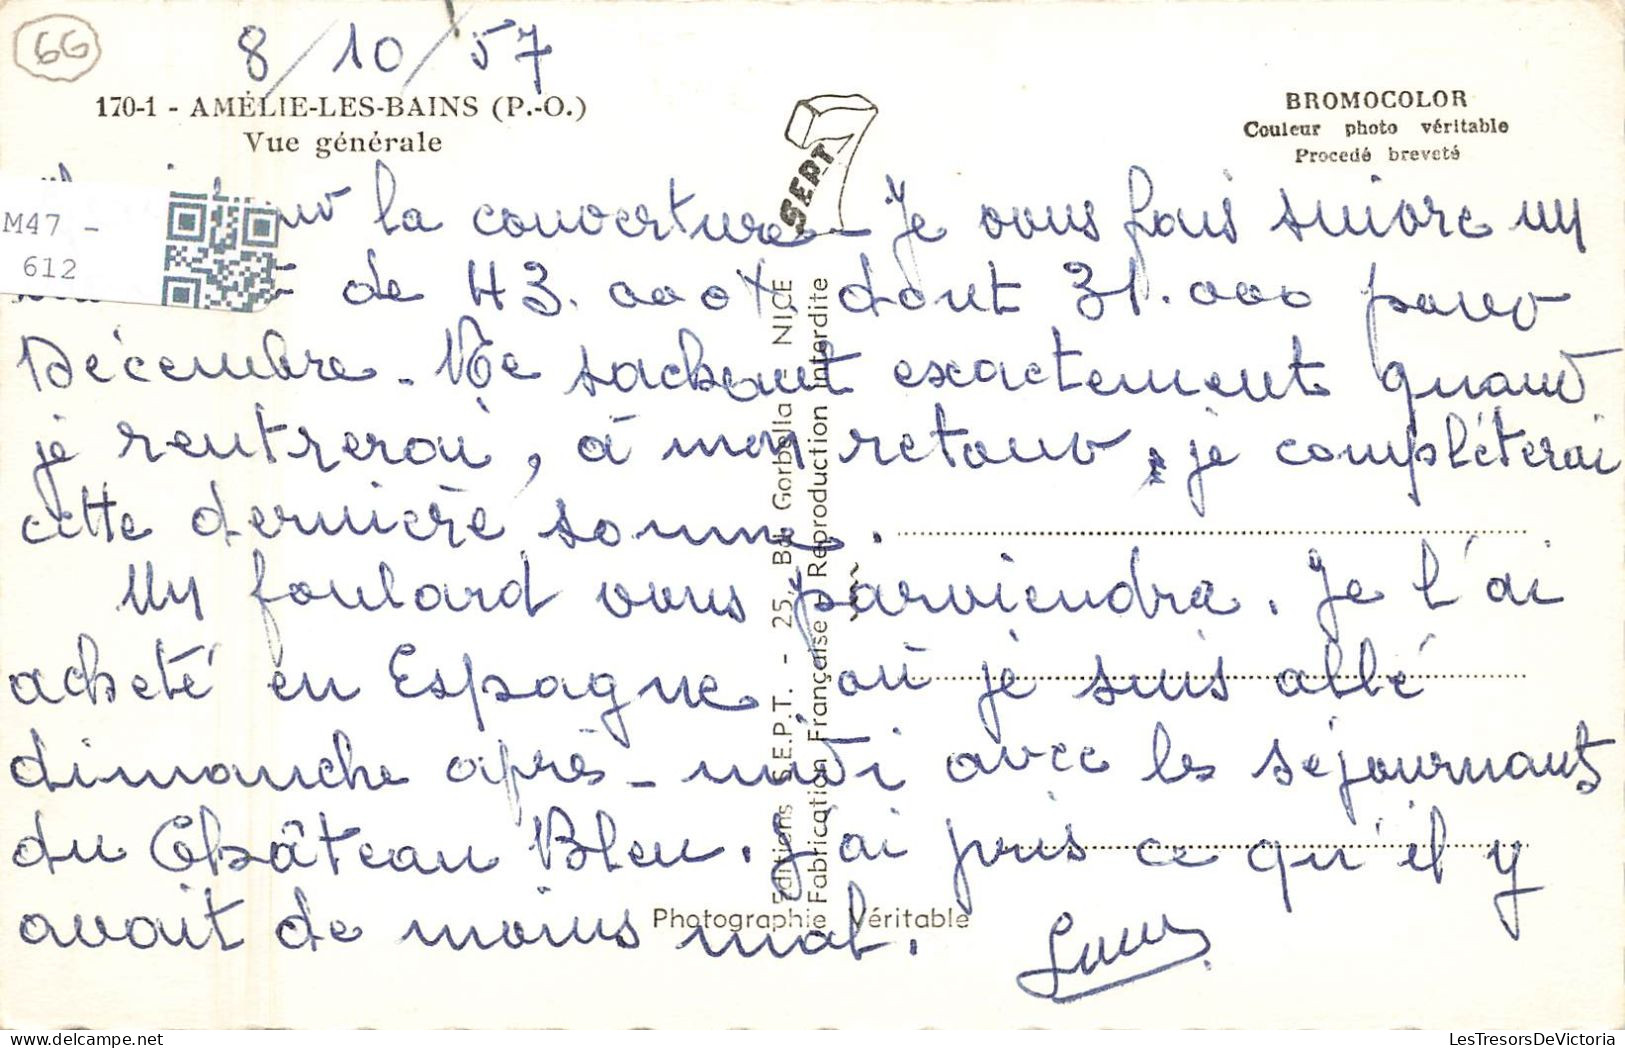 66
8/10/57
170-1 - AMÉLIE-LES-BAINS (P.-O.)
Vue générale
BROMOCOLOR
Couleur photo véritable
Procedé breveté
SEPT 7
M47 -
612
la couverture - Je vous fais suivre un
de 43.000 F dont 31.000 pour
Décembre - Ne sachant exactement quand
je rentrerai, à mon retour, je complèterai
cette dernière somme.
Un foulard vous parviendra. Je l'ai
acheté en Espagne, où je suis allé
dimanche après-midi avec les séjournants
du Château Bleu. J'ai pris ce qu'il y
avait de moins mal.
Editions S.E.P.T. - 25, Bd Gorbella - NICE
Fabrication Française - Reproduction Interdite
Photographie Véritable
LesTresorsDeVictoria